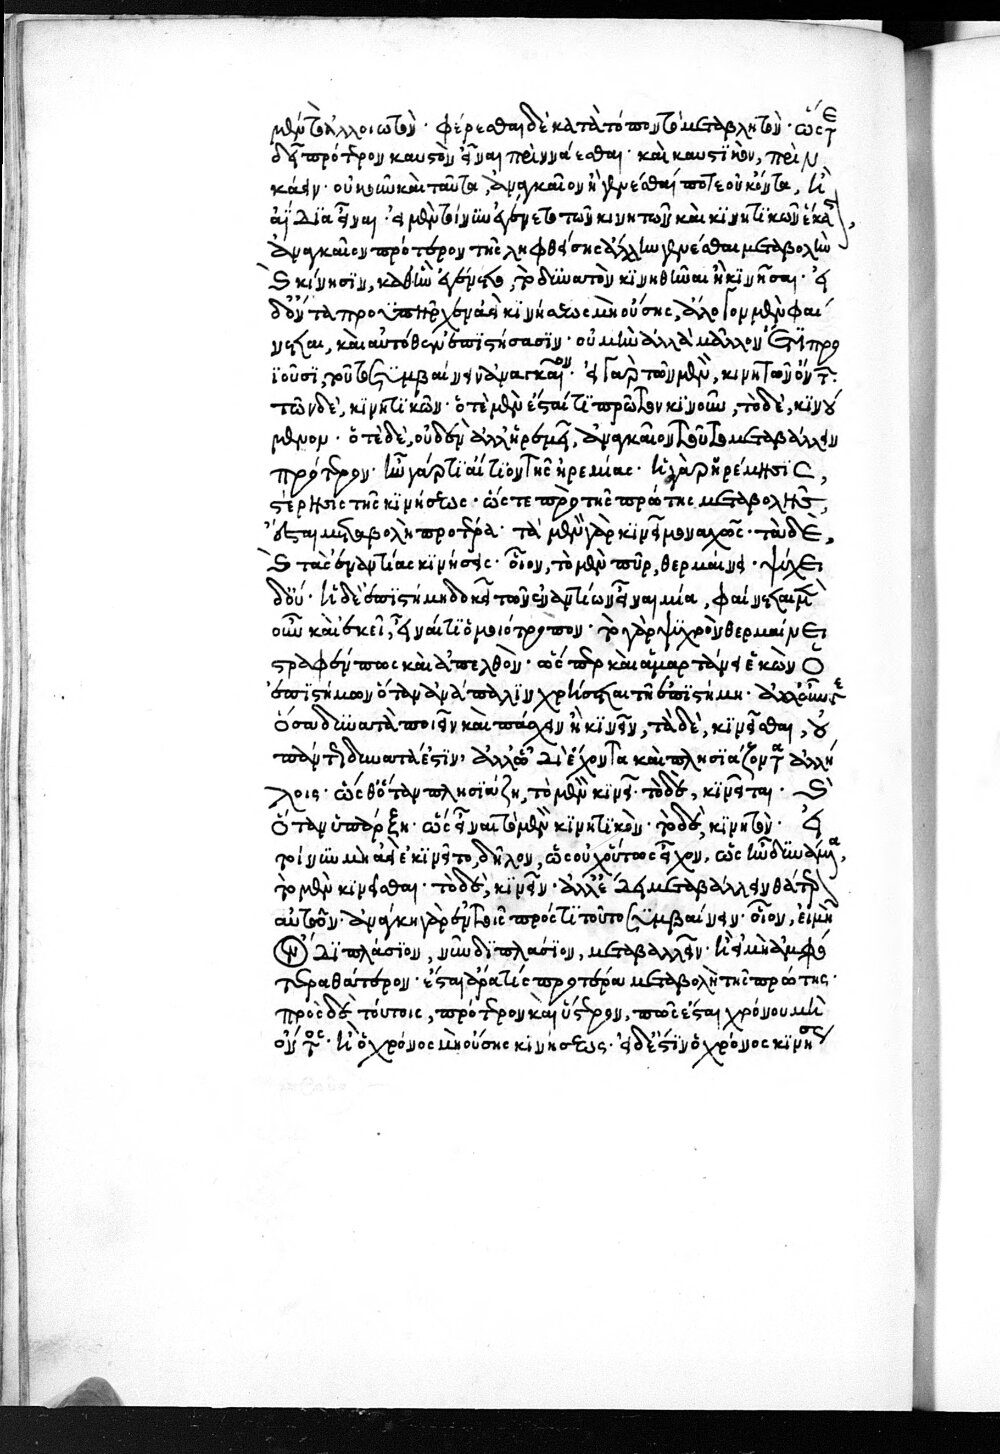 μὲν τὸ ἀλλοιωτὸν· φέρεσθαι δὲ κατὰ τόπον τὸ μεταβλητὸν· ὥστε
δεῖ πρότερον καυστὸν εἶναι πρὶν κάεσθαι· καὶ καυστικὸν, πρὶν
κάειν· οὐκοῦν καὶ ταῦτα, ἀναγκαῖον ἢ γενέσθαι ποτε οὐκ ὄντα, ἢ
ἀΐδια εἶναι· εἰ μὲν τοίνυν ἐγένετο τῶν κινητῶν καὶ κινητικῶν ἕκαστον,
ἀναγκαῖον πρότερον τῆς ληφθείσης ἄλλην γενέσθαι μεταβολὴν
καὶ κίνησιν, καθ' ἣν ἐγένετο, τὸ δυνατὸν κινηθῆναι ἢ κινῆσαι· εἰ
δ' ὄντα προϋπῆρχεν ἀεὶ κινήσεως μὴ οὔσης, ἄλογον μὲν φαί
νεται, καὶ αὐτόθεν ἐπιστήσασιν· οὐ μὴν ἀλλὰ μᾶλλον ἔτι προ
ϊοῦσι, τοῦτο συμβαίνειν ἀναγκαῖον· εἰ γὰρ τῶν μὲν, κινητῶν ὄντων·
τῶν δὲ, κινητικῶν· ὁτὲ μὲν ἔσται τι πρῶτον κινοῦν, τὸ δὲ, κινού
μενον· ὁτὲ δὲ, οὐδὲν ἀλλ' ἠρεμεῖ, ἀναγκαῖον τοῦτο μεταβάλλειν
πρότερον· ἦν γάρ τι αἴτιον τῆς ἠρεμίας· ἡ γὰρ ἠρέμησις,
στέρησις τῆς κινήσεως· ὥστε πρὸ τῆς πρώτης μεταβολῆς,
ἔσται μεταβολὴ προτέρα· τὰ μὲν γὰρ κινεῖ μοναχῶς· τὰ δὲ,
καὶ τὰς ἐναντίας κινήσεις· οἷον, τὸ μὲν πῦρ, θερμαίνει· ψύχει
δ' οὔ· ἡ δὲ ἐπιστήμη δοκεῖ τῶν ἐναντίων εἶναι μία, φαίνεται μὲν
οὖν καὶ ἐκεῖ, εἶναί τι ὁμοιότροπον· τὸ γὰρ ψυχρὸν θερμαίνει
στραφέν πως καὶ ἀπελθὸν· ὥσπερ καὶ ἁμαρτάνει ἑκὼν ὁ
ἐπιστήμων ὅταν ἀνάπαλιν χρήσηται τῇ ἐπιστήμῃ· ἀλλ' οὖν γε
ὅσα δυνατὰ ποιεῖν καὶ πάσχειν ἢ κινεῖν, τὰ δὲ, κινεῖσθαι, οὐ
πάντῃ δυνατά ἐστιν, ἀλλ' ὡδὶ ἔχοντα καὶ πλησιάζοντα ἀλλή
λοις· ὥσθ' ὅταν πλησιάζῃ, τὸ μὲν κινεῖ· τὸ δὲ, κινεῖται· καὶ
ὅταν ὑπάρξῃ· ὡς εἶναι τὸ μὲν κινητικὸν· τὸ δὲ, κινητὸν· εἰ
τοίνυν μὴ ἀεὶ ἐκινεῖτο, δῆλον, ὡς οὐχ οὕτως εἶχον, ὡς ἦν δυνάμενα,
τὸ μὲν κινεῖσθαι· τὸ δὲ, κινεῖν· ἀλλ' ἔδει μεταβάλλειν θάτερον
αὐτῶν· ἀνάγκη γὰρ ἐν τοῖς πρός τι τοῦτο συμβαίνειν· οἷον, εἰ μὴ
ὂν διπλάσιον, νῦν διπλάσιον, μεταβάλλειν· ἢ εἰ μὴ ἀμφό
τερα θάτερον· ἔσται ἄρα τὶς προτέρα μεταβολὴ τῆς πρώτης·
πρὸς δὲ τούτοις, πρότερον καὶ ὕστερον, πῶς ἔσται χρόνου μὴ
ὄντος· ἢ ὁ χρόνος μὴ οὔσης κινήσεως· εἰ δέ ἐστιν ὁ χρόνος κινήσεως